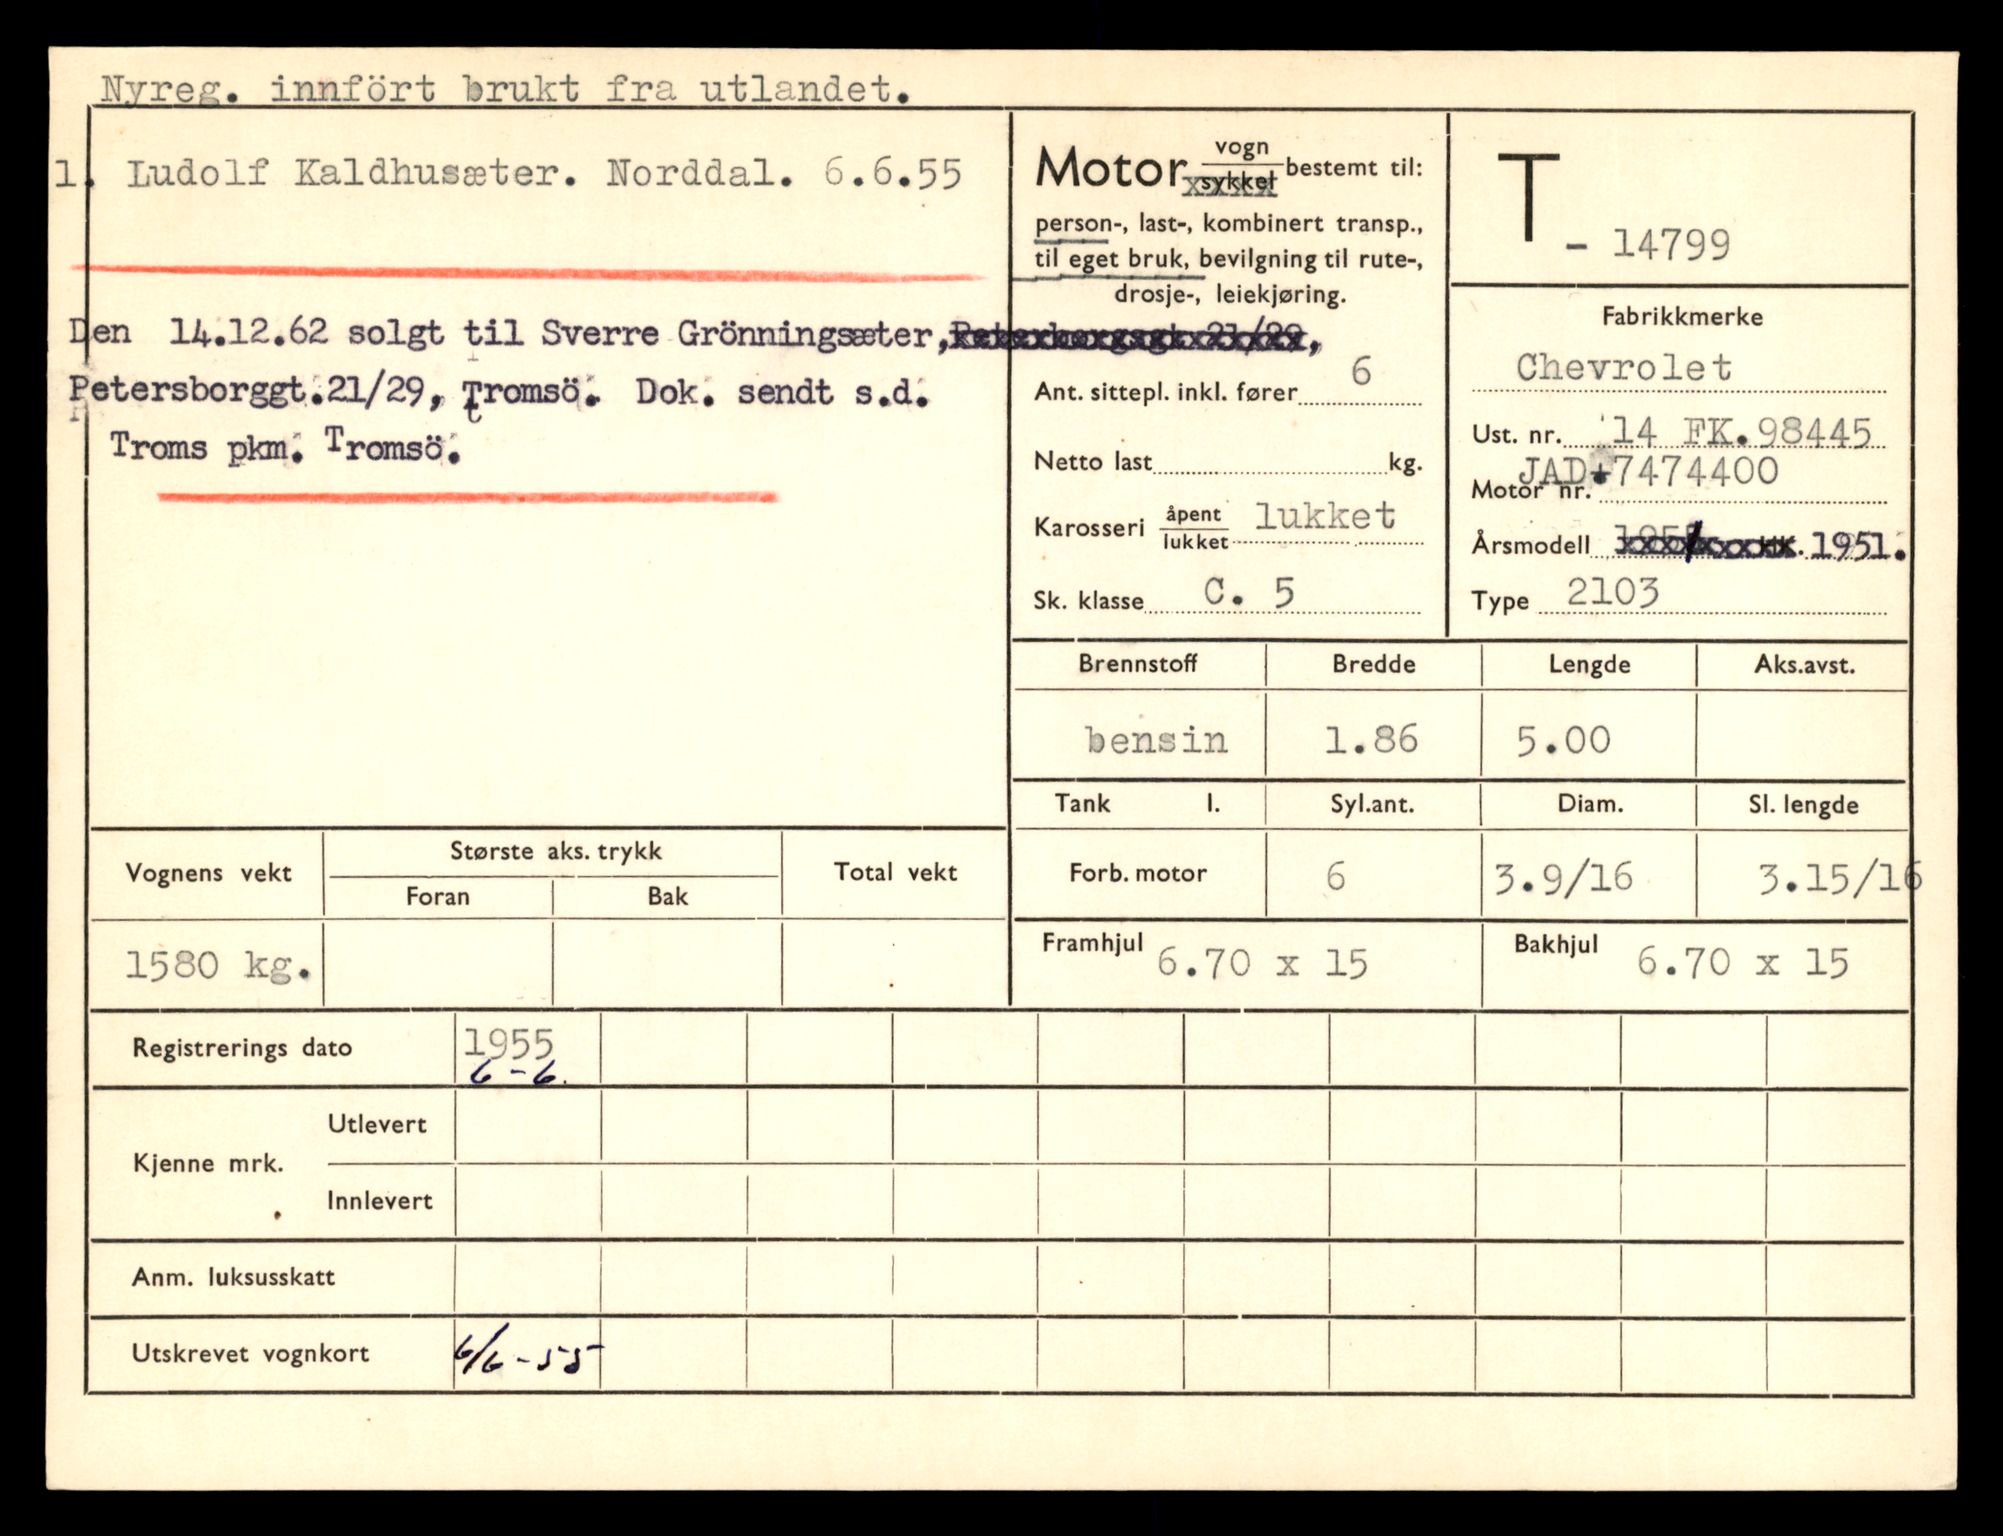 Nyreg. innfört brukt fra utlandet.
1. Ludolf Kaldhusæter. Norddal. 6.6.55
Den 14.12.62 solgt til Sverre Grönningsæter, Petersborgsgt. 21/29,
Petersborggt.21/29, Tromsö. Dok. sendt s.d.
Troms pkm. Tromsö.
Motor vogn/sykkel bestemt til:
person-, last-, kombinert transp.,
til eget bruk, bevilgning til rute-,
drosje-, leiekjøring.
Ant. sittepl. inkl. fører 6
Netto last kg.
Karosseri åpent/lukket lukket
Sk. klasse C. 5
T - 14799
Fabrikkmerke
Chevrolet
Ust. nr. 14 FK.98445
Motor nr. JAD 7474400
Årsmodell 1951.
Type 2103
Brennstoff Bredde Lengde Aks.avst.
bensin 1.86 5.00
Tank l. Syl.ant. Diam. Sl. lengde
Forb. motor 6 3.9/16 3.15/16
Framhjul 6.70 x 15 Bakhjul 6.70 x 15
Vognens vekt Største aks. trykk Total vekt
Foran Bak
1580 kg.
Registrerings dato 1955
6-6.
Kjenne mrk. Utlevert
Innlevert
Anm. luksusskatt
Utskrevet vognkort 6/6-55